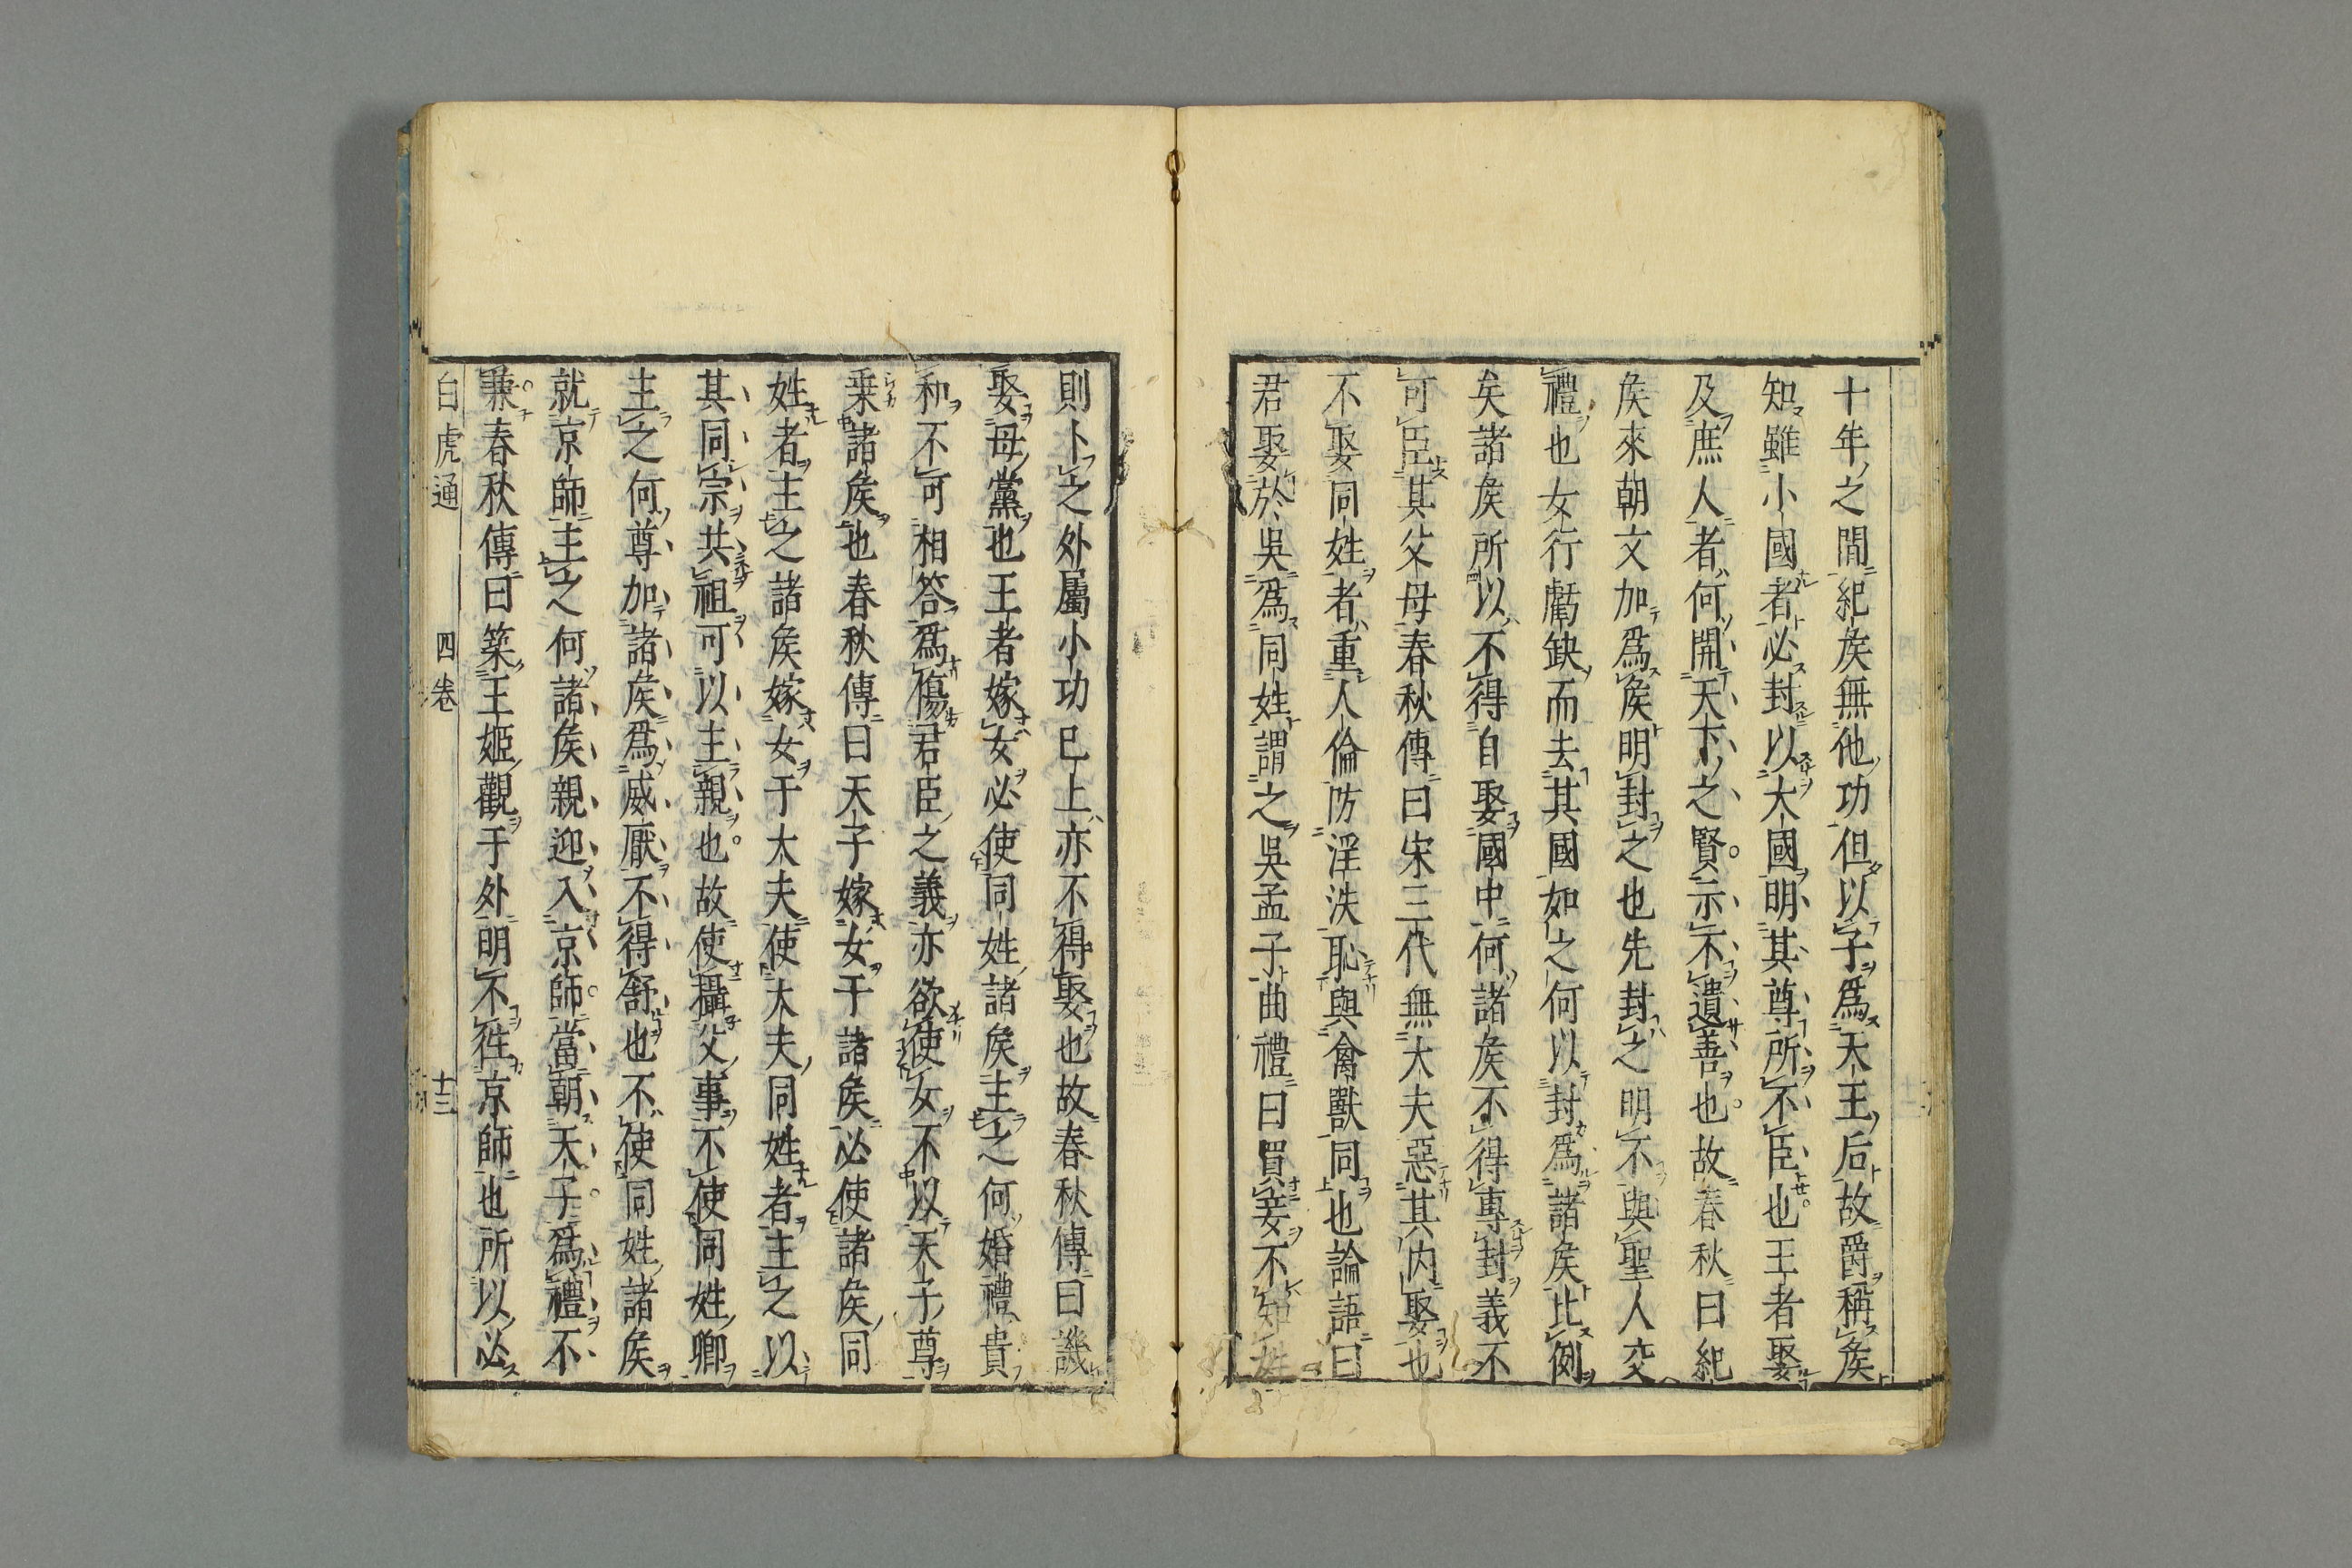 十年之間紀矦無他功但以子爲天王后故爵稱矦
知雖小國者必封以大國明其尊所不臣也王者娶
及庶人者何開天下之賢示不遺善也故春秋曰紀
矦來朝文加爲矦明封之也先封之明不與聖人交
禮也女行虧缺而去其國如之何以封爲諸矦比例
矣諸矦所以不得自娶國中何諸矦不得專封義不
可臣其父母春秋傳曰宋三代無大夫惡其内娶也
不娶同姓者重人倫防淫泆恥與禽獸同也論語曰
君娶於吳爲同姓謂之吳孟子曲禮曰買妾不知姓
則卜之外屬小功已上亦不得娶也故春秋傳曰譏
娶母黨也王者嫁女必使同姓諸矦主之何婚禮貴
和不可相答爲傷君臣之義亦欲使女不以天子尊
乗諸矦也春秋傳曰天子嫁女于諸矦必使諸矦同
姓者主之諸矦嫁女于大夫使大夫同姓者主之以
其同宗共祖可以主親也故使攝父事不使同姓卿
主之何尊加諸矦爲威厭不得舒也不使同姓諸矦
就京師主之何諸矦親迎入京師當朝天子爲禮不
兼春秋傳曰築王姬觀于外明不徃京師也所以必
白虎通 四卷 十三